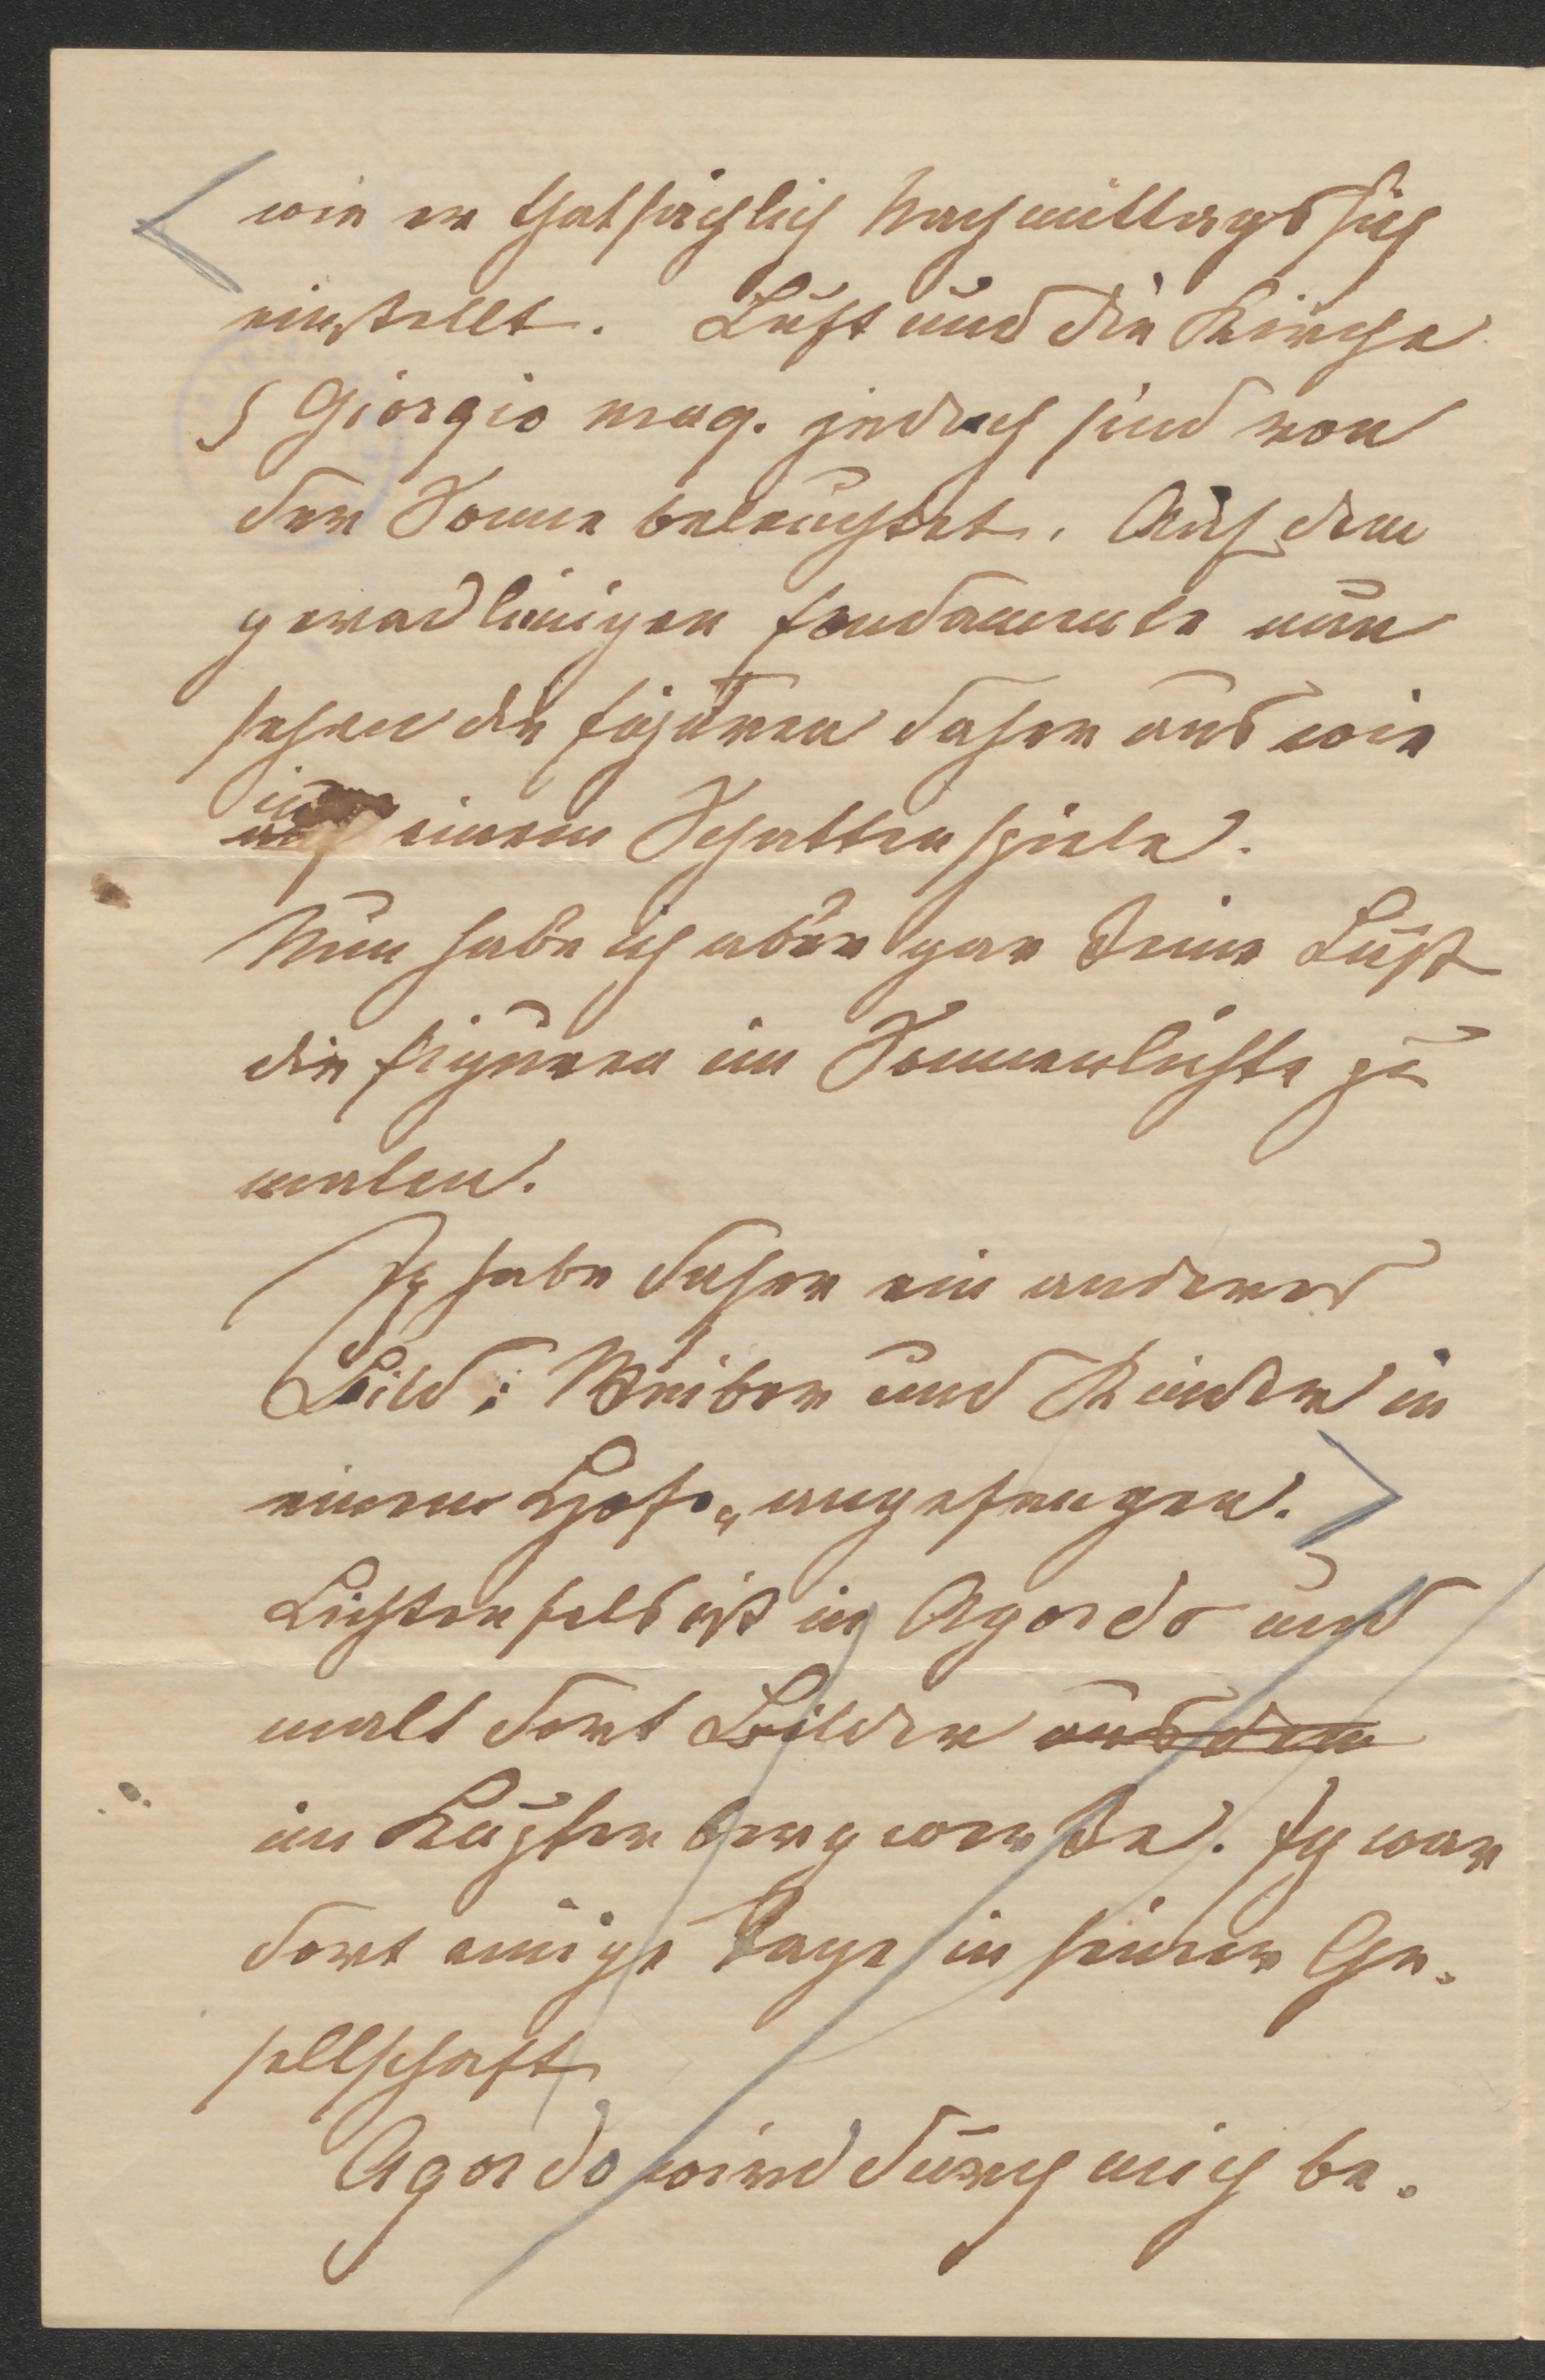 wie er thatsächlich Nachmittags sich
einstellt. Luft und die Kirche
S Giorgio mag. jedoch sind von
der Sonne beleuchtet. Auf dem
geradlinigen Fondamente nun
sehen die Figuren daher aus wie
in einem Schattenspiele.
Nun habe ich aber gar keine Lust
die Figuren im Sonnenlichte zu
malen.
Ich habe daher ein anderes
Bild: Weiber und Kinder in
einem Hofe, angefangen.
Lichtenfels ist in Agordo und
malt dort Bilder aus dem
im Kupferbergwerke. Ich war
dort einige Tage in seiner Ge-
sellschaft
Agordo wird durch mich be-